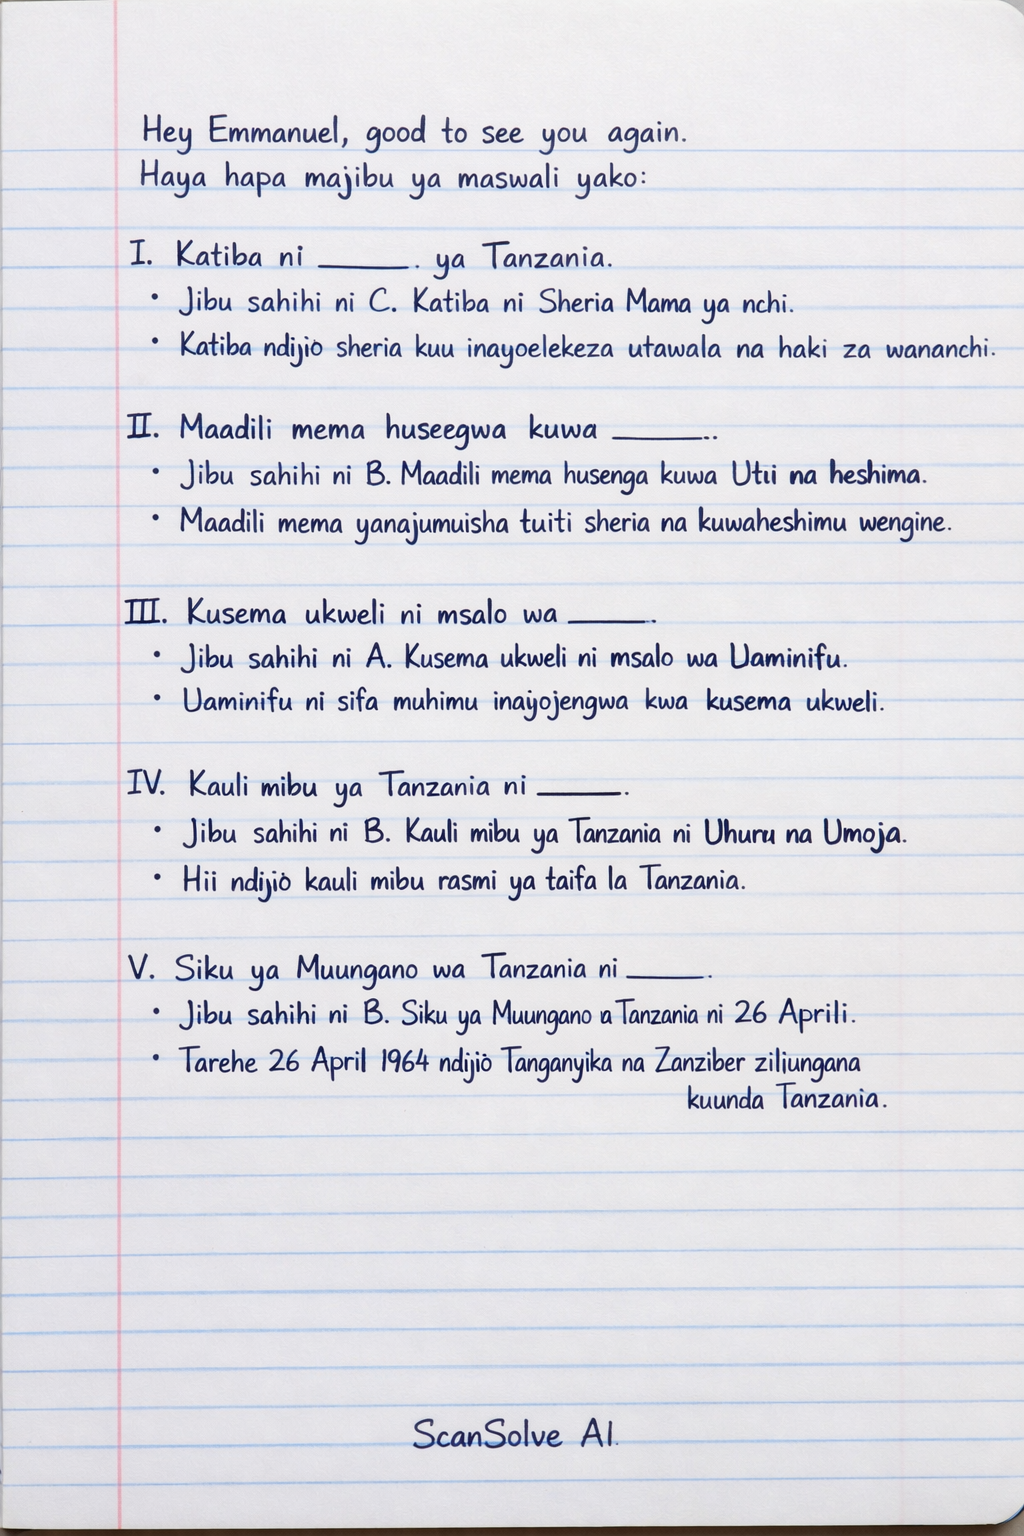 Hey Emmanuel, good to see you again.
Haya hapa majibu ya maswali yako:
I. Katiba ni ______. ya Tanzania.
• Jibu sahihi ni C. Katiba ni Sheria Mama ya nchi.
• Katiba ndijio sheria kuu inayoelekeza utawala na haki za wananchi.
II. Maadili mema huseegwa kuwa ______..
• Jibu sahihi ni B. Maadili mema husenga kuwa Utii na heshima.
• Maadili mema yanajumuisha tuiti sheria na kuwaheshimu wengine.
III. Kusema ukweli ni msalo wa ______.
• Jibu sahihi ni A. Kusema ukweli ni msalo wa Uaminifu.
• Uaminifu ni sifa muhimu inayojengwa kwa kusema ukweli.
IV. Kauli mibu ya Tanzania ni ______.
• Jibu sahihi ni B. Kauli mibu ya Tanzania ni Uhuru na Umoja.
• Hii ndijio kauli mibu rasmi ya taifa la Tanzania.
V. Siku ya Muungano wa Tanzania ni ______.
• Jibu sahihi ni B. Siku ya Muungano a Tanzania ni 26 Aprili.
• Tarehe 26 April 1964 ndijio Tanganyika na Zanziber ziliungana
kuunda Tanzania.
ScanSolve AI.